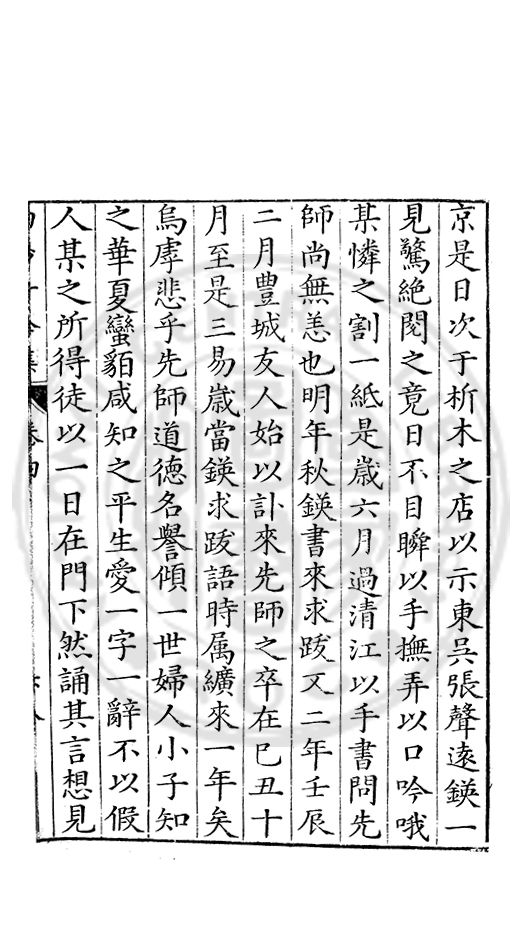 京是日次于析木之店以示東吳張聲遠鍈一
見驚絶閱之竟日不目瞬以手撫弄以口吟哦
某憐之割一紙是嵗六月過清江以手書問先
師尚無恙也明年秋鍈書來求䟦又二年壬辰
二月豊城友人始以訃來先師之卒在已丑十
月至是三易嵗當鍈求䟦語時属纊來一年矣
烏虖悲乎先師道德名譽傾一世婦人小子知
之華夏蠻貊咸知之平生愛一字一辭不以假
人某之所得徒以一日在門下然誦其言想見
卷四